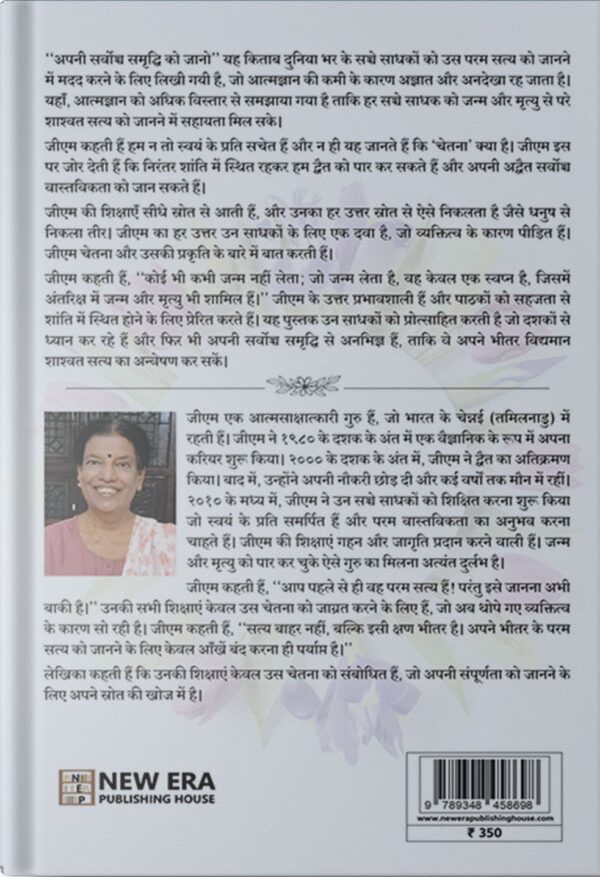 “अपनी सर्वोच्च समृद्धि को जानो” यह किताब दुनिया भर के सच्चे साधकों को उस परम सत्य को जानने
में मदद करने के लिए लिखी गयी है, जो आत्मज्ञान की कमी के कारण अज्ञात और अनदेखा रह जाता है।
यहाँ, आत्मज्ञान को अधिक विस्तार से समझाया गया है ताकि हर सच्चे साधक को जन्म और मृत्यु से परे
शाश्वत सत्य को जानने में सहायता मिल सके।
जीएम कहती हैं हम न तो स्वयं के प्रति सचेत हैं और न ही यह जानते हैं कि ‘चेतना’ क्या है। जीएम इस
पर जोर देती हैं कि निरंतर शांति में स्थित रहकर हम द्वैत को पार कर सकते हैं और अपनी अद्वैत सर्वोच्च
वास्तविकता को जान सकते हैं।
जीएम की शिक्षाएँ सीधे स्रोत से आती हैं, और उनका हर उत्तर स्रोत से ऐसे निकलता है जैसे धनुष से
निकला तीर। जीएम का हर उत्तर उन साधकों के लिए एक दवा है, जो व्यक्तित्व के कारण पीड़ित हैं।
जीएम चेतना और उसकी प्रकृति के बारे में बात करती हैं।
जीएम कहती हैं, “कोई भी कभी जन्म नहीं लेता; जो जन्म लेता है, वह केवल एक स्वप्न है, जिसमें
अंतरिक्ष में जन्म और मृत्यु भी शामिल हैं।” जीएम के उत्तर प्रभावशाली हैं और पाठकों को सहजता से
शांति में स्थित होने के लिए प्रेरित करते हैं। यह पुस्तक उन साधकों को प्रोत्साहित करती है जो दशकों से
ध्यान कर रहे हैं और फिर भी अपनी सर्वोच्च समृद्धि से अनभिज्ञ हैं, ताकि वे अपने भीतर विद्यमान
शाश्वत सत्य का अन्वेषण कर सकें।
जीएम एक आत्मसाक्षात्कारी गुरु हैं, जो भारत के चेन्नई (तमिलनाडु) में
रहती हैं। जीएम ने १९८० के दशक के अंत में एक वैज्ञानिक के रूप में अपना
करियर शुरू किया। २००० के दशक के अंत में, जीएम ने द्वैत का अतिक्रमण
किया। बाद में, उन्होंने अपनी नौकरी छोड़ दी और कई वर्षों तक मौन में रहीं।
२०१० के मध्य में, जीएम ने उन सच्चे साधकों को शिक्षित करना शुरू किया
जो स्वयं के प्रति समर्पित हैं और परम वास्तविकता का अनुभव करना
चाहते हैं। जीएम की शिक्षाएं गहन और जागृति प्रदान करने वाली हैं। जन्म
और मृत्यु को पार कर चुके ऐसे गुरु का मिलना अत्यंत दुर्लभ है।
जीएम कहती हैं, “आप पहले से ही वह परम सत्य हैं! परंतु इसे जानना अभी
बाकी है।” उनकी सभी शिक्षाएं केवल उस चेतना को जाग्रत करने के लिए हैं, जो अब थोपे गए व्यक्तित्व
के कारण सो रही है। जीएम कहती हैं, “सत्य बाहर नहीं, बल्कि इसी क्षण भीतर है। अपने भीतर के परम
सत्य को जानने के लिए केवल आँखें बंद करना ही पर्याप्त है।”
लेखिका कहती हैं कि उनकी शिक्षाएं केवल उस चेतना को संबोधित हैं, जो अपनी संपूर्णता को जानने के
लिए अपने स्रोत की खोज में है।
N E P
NEW ERA
PUBLISHING HOUSE
9 789348 458698
www.newerapublishinghouse.com
₹ 350